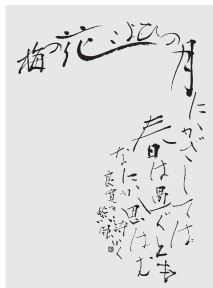 梅の花こよひの
月にかざしては
春は過ぐとも
なにか思はむ
良寛の詩かく